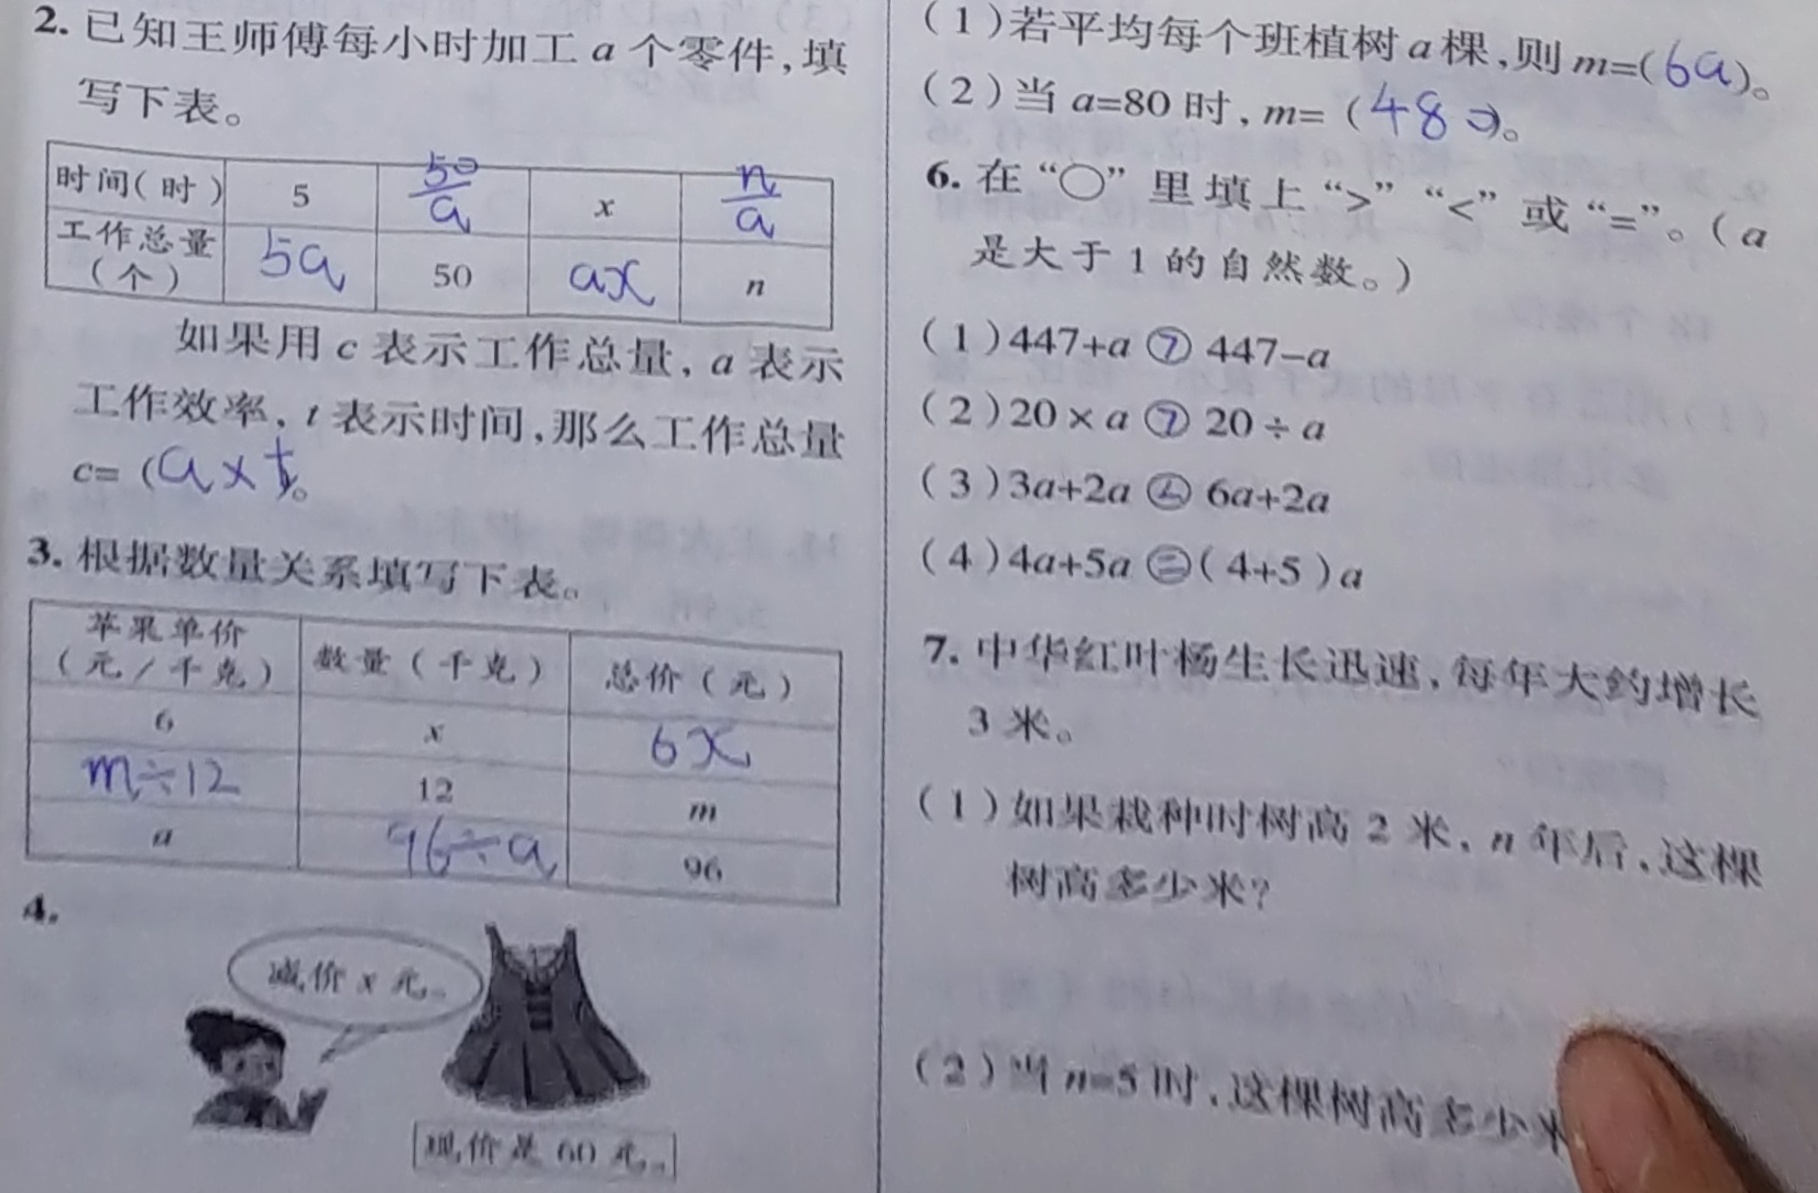 2. 已知王师傅每小时加工 a 个零件,填
写下表。
时间(时) 5 50/a x n/a
工作总量(个) 5a 50 ax n
如果用 c 表示工作总量, a 表示
工作效率, t 表示时间,那么工作总量
c= (a×t。
3. 根据数量关系填写下表。
苹果单价(元/千克) 数量(千克) 总价(元)
6 x 6x
m÷12 12 m
a 96÷a 96
4.
减价 x 元。
现价是 60 元。
(1)若平均每个班植树 a 棵,则 m=(6a)。
(2)当 a=80 时, m= (480)。
6. 在“○”里填上“>”“<”或“=”。(a
是大于 1 的自然数。)
(1)447+a > 447-a
(2)20×a > 20÷a
(3)3a+2a < 6a+2a
(4)4a+5a = (4+5)a
7. 中华红叶杨生长迅速,每年大约增长
3 米。
(1)如果栽种时树高 2 米, n 年后,这棵
树高多少米?
(2)当 n=5 时,这棵树高多少米